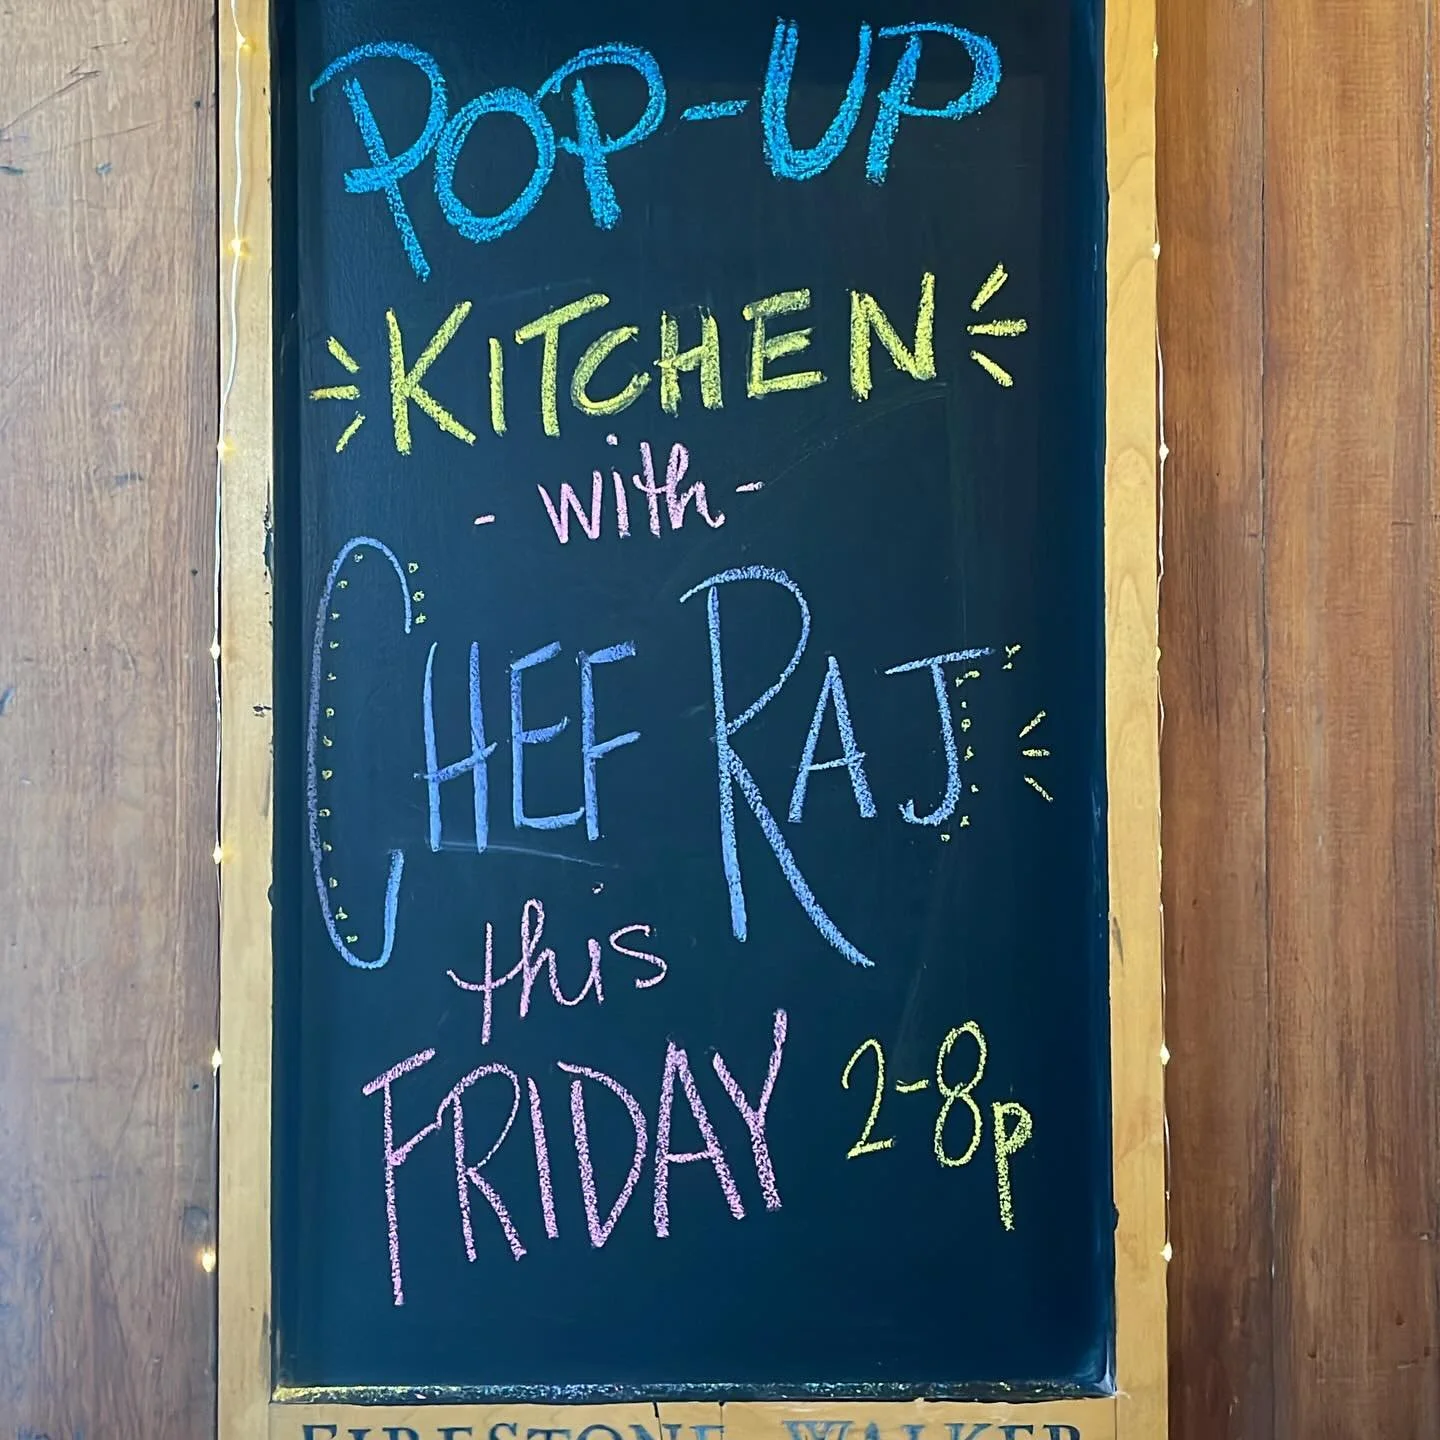 POP-UP
KITCHEN
- with -
CHEF RAJ
this
FRIDAY 2-8p
FIRESTONE WALKER